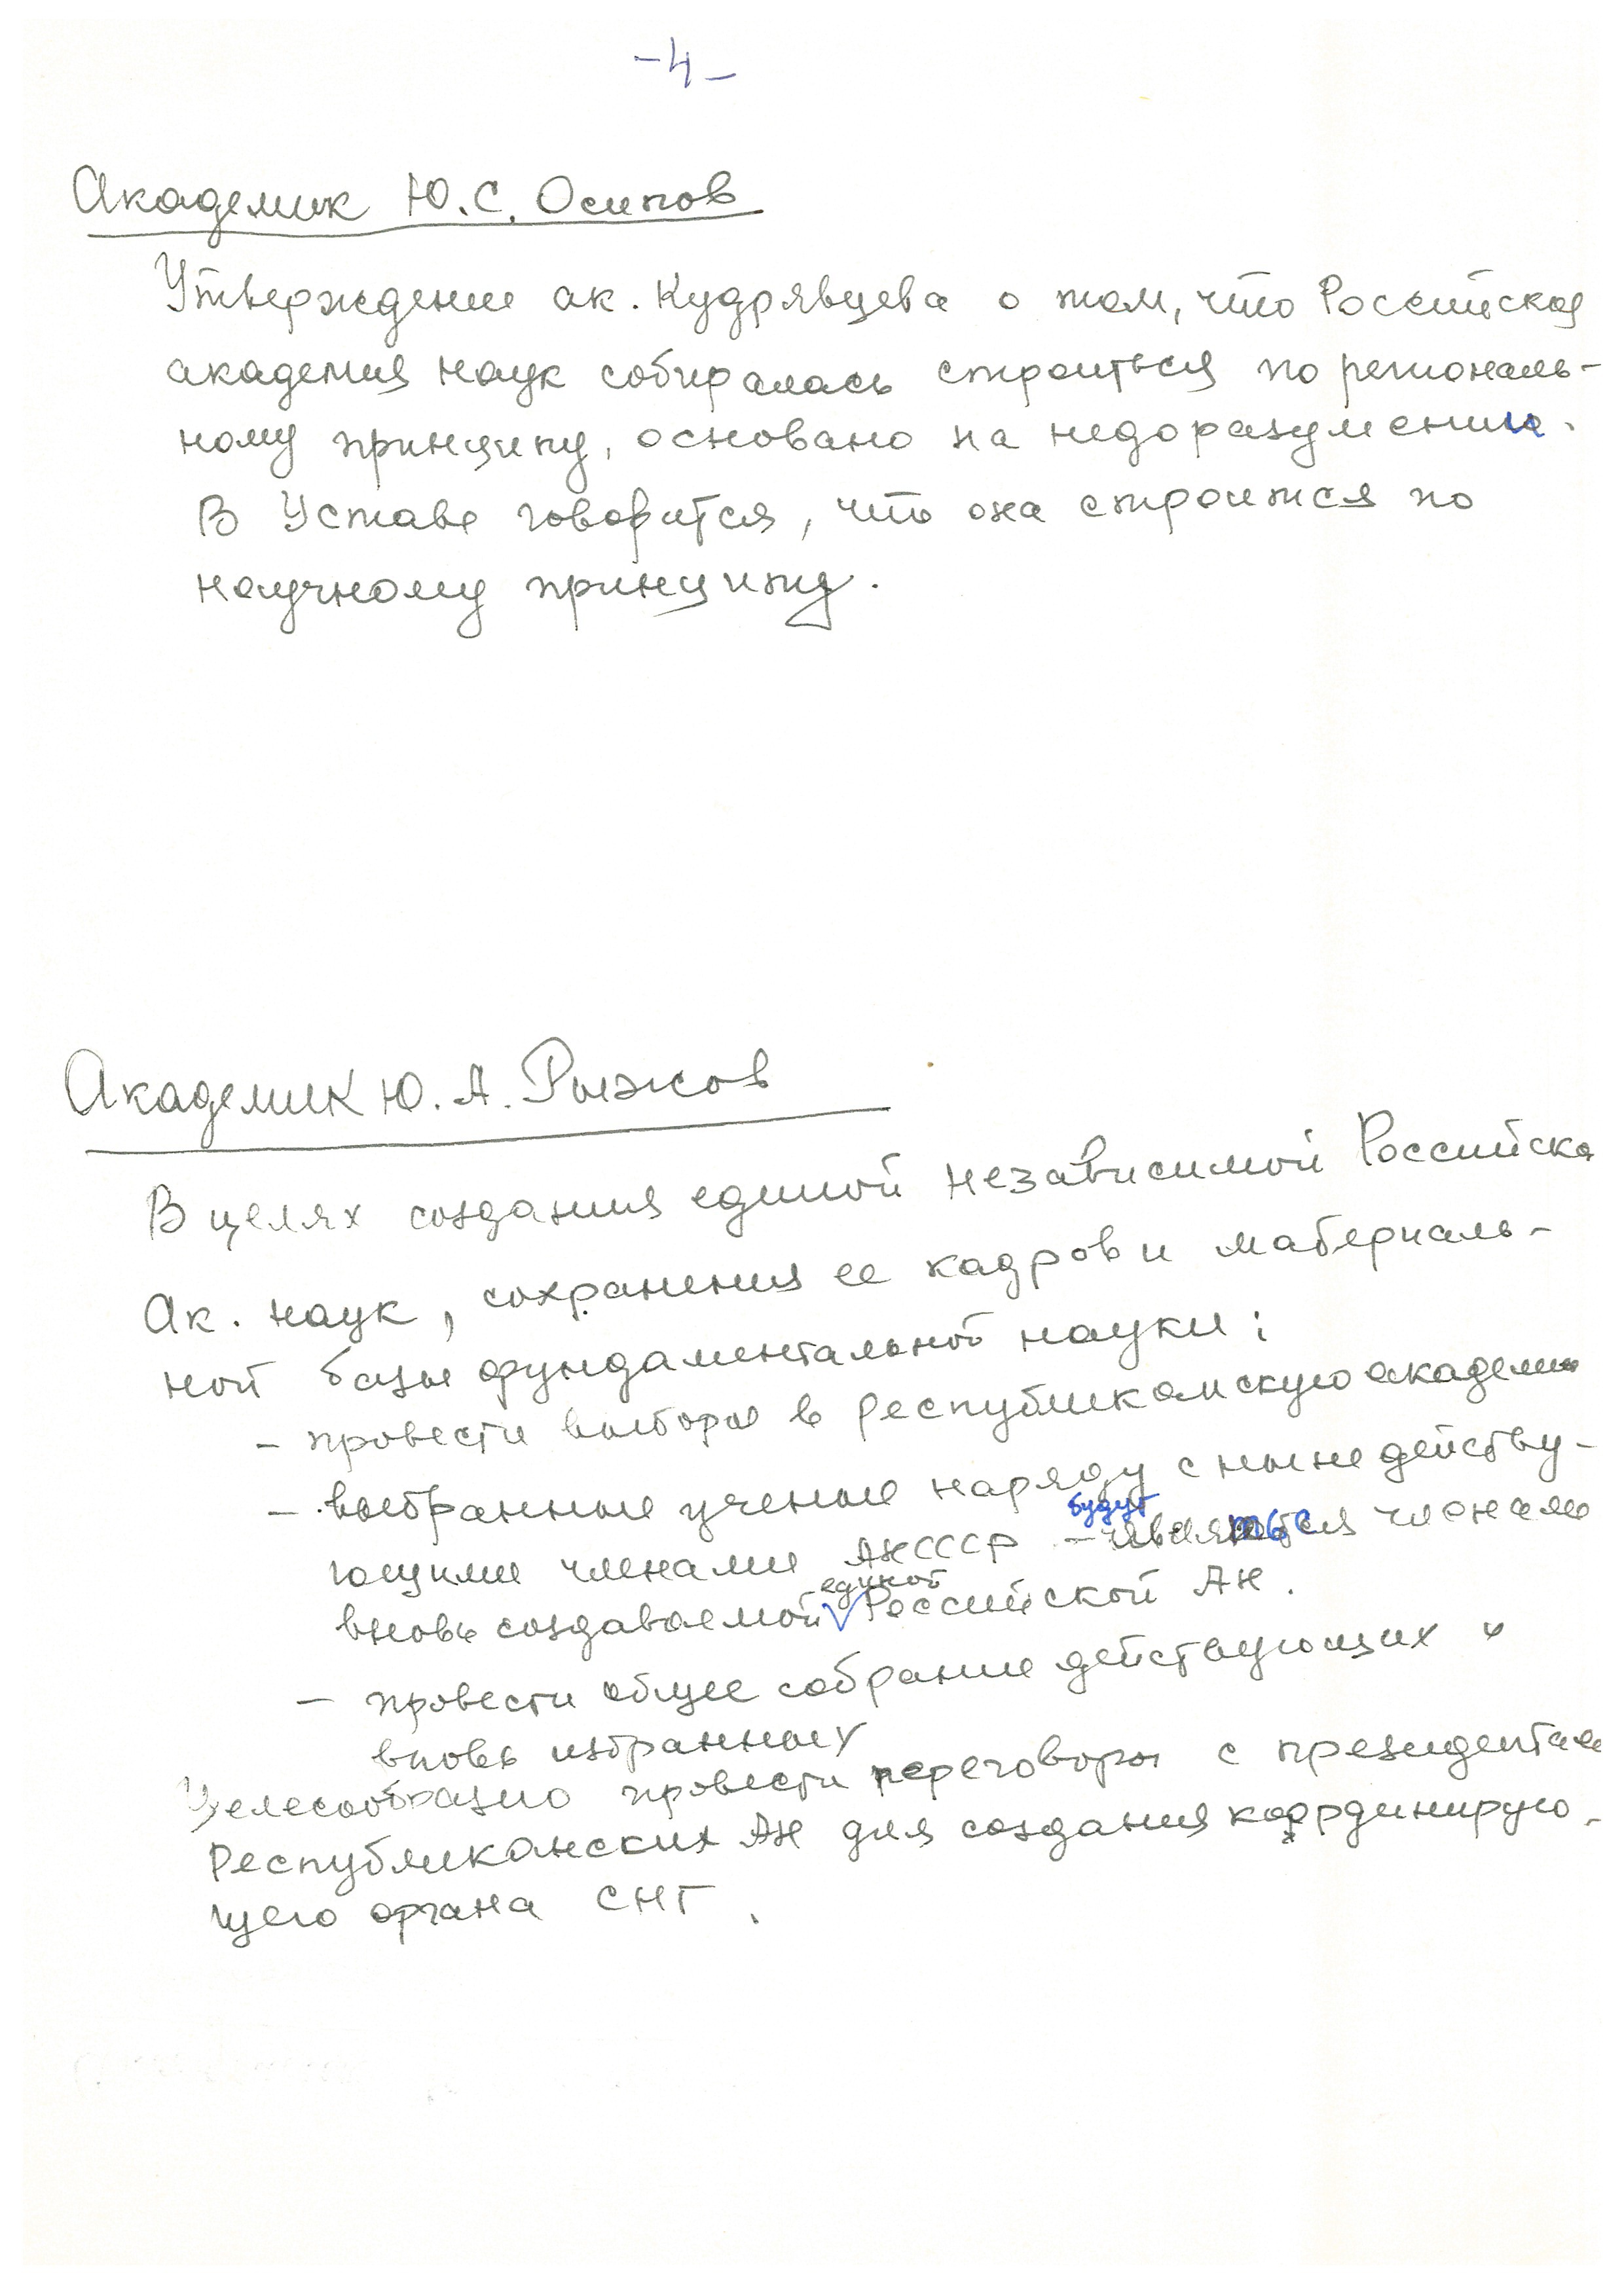 -4-
Академик Ю.С. Осипов
Утверждение ак. Кудрявцева о том, что Российская
академия наук собиралась строиться по региональ-
ному принципу, основано на недоразумении.
В Уставе говорится, что она строится по
научному принципу.
Академик Ю.А. Рыжов
В целях создания единой независимой Российско
Ак. наук, сохранения ее кадров и материаль-
ной базы фундаментальной науки:
- провести выборы в республиканскую академию
- выбранные ученые наряду с ныне действу-
будут
ющими членами АН СССР - являться членами
единой
вновь создаваемой V Российской АН.
- провести общее собрание действующих и
вновь избранных
Целесообразно провести переговоры с президентами
Республиканских АН для создания координирую-
щего органа СНГ.